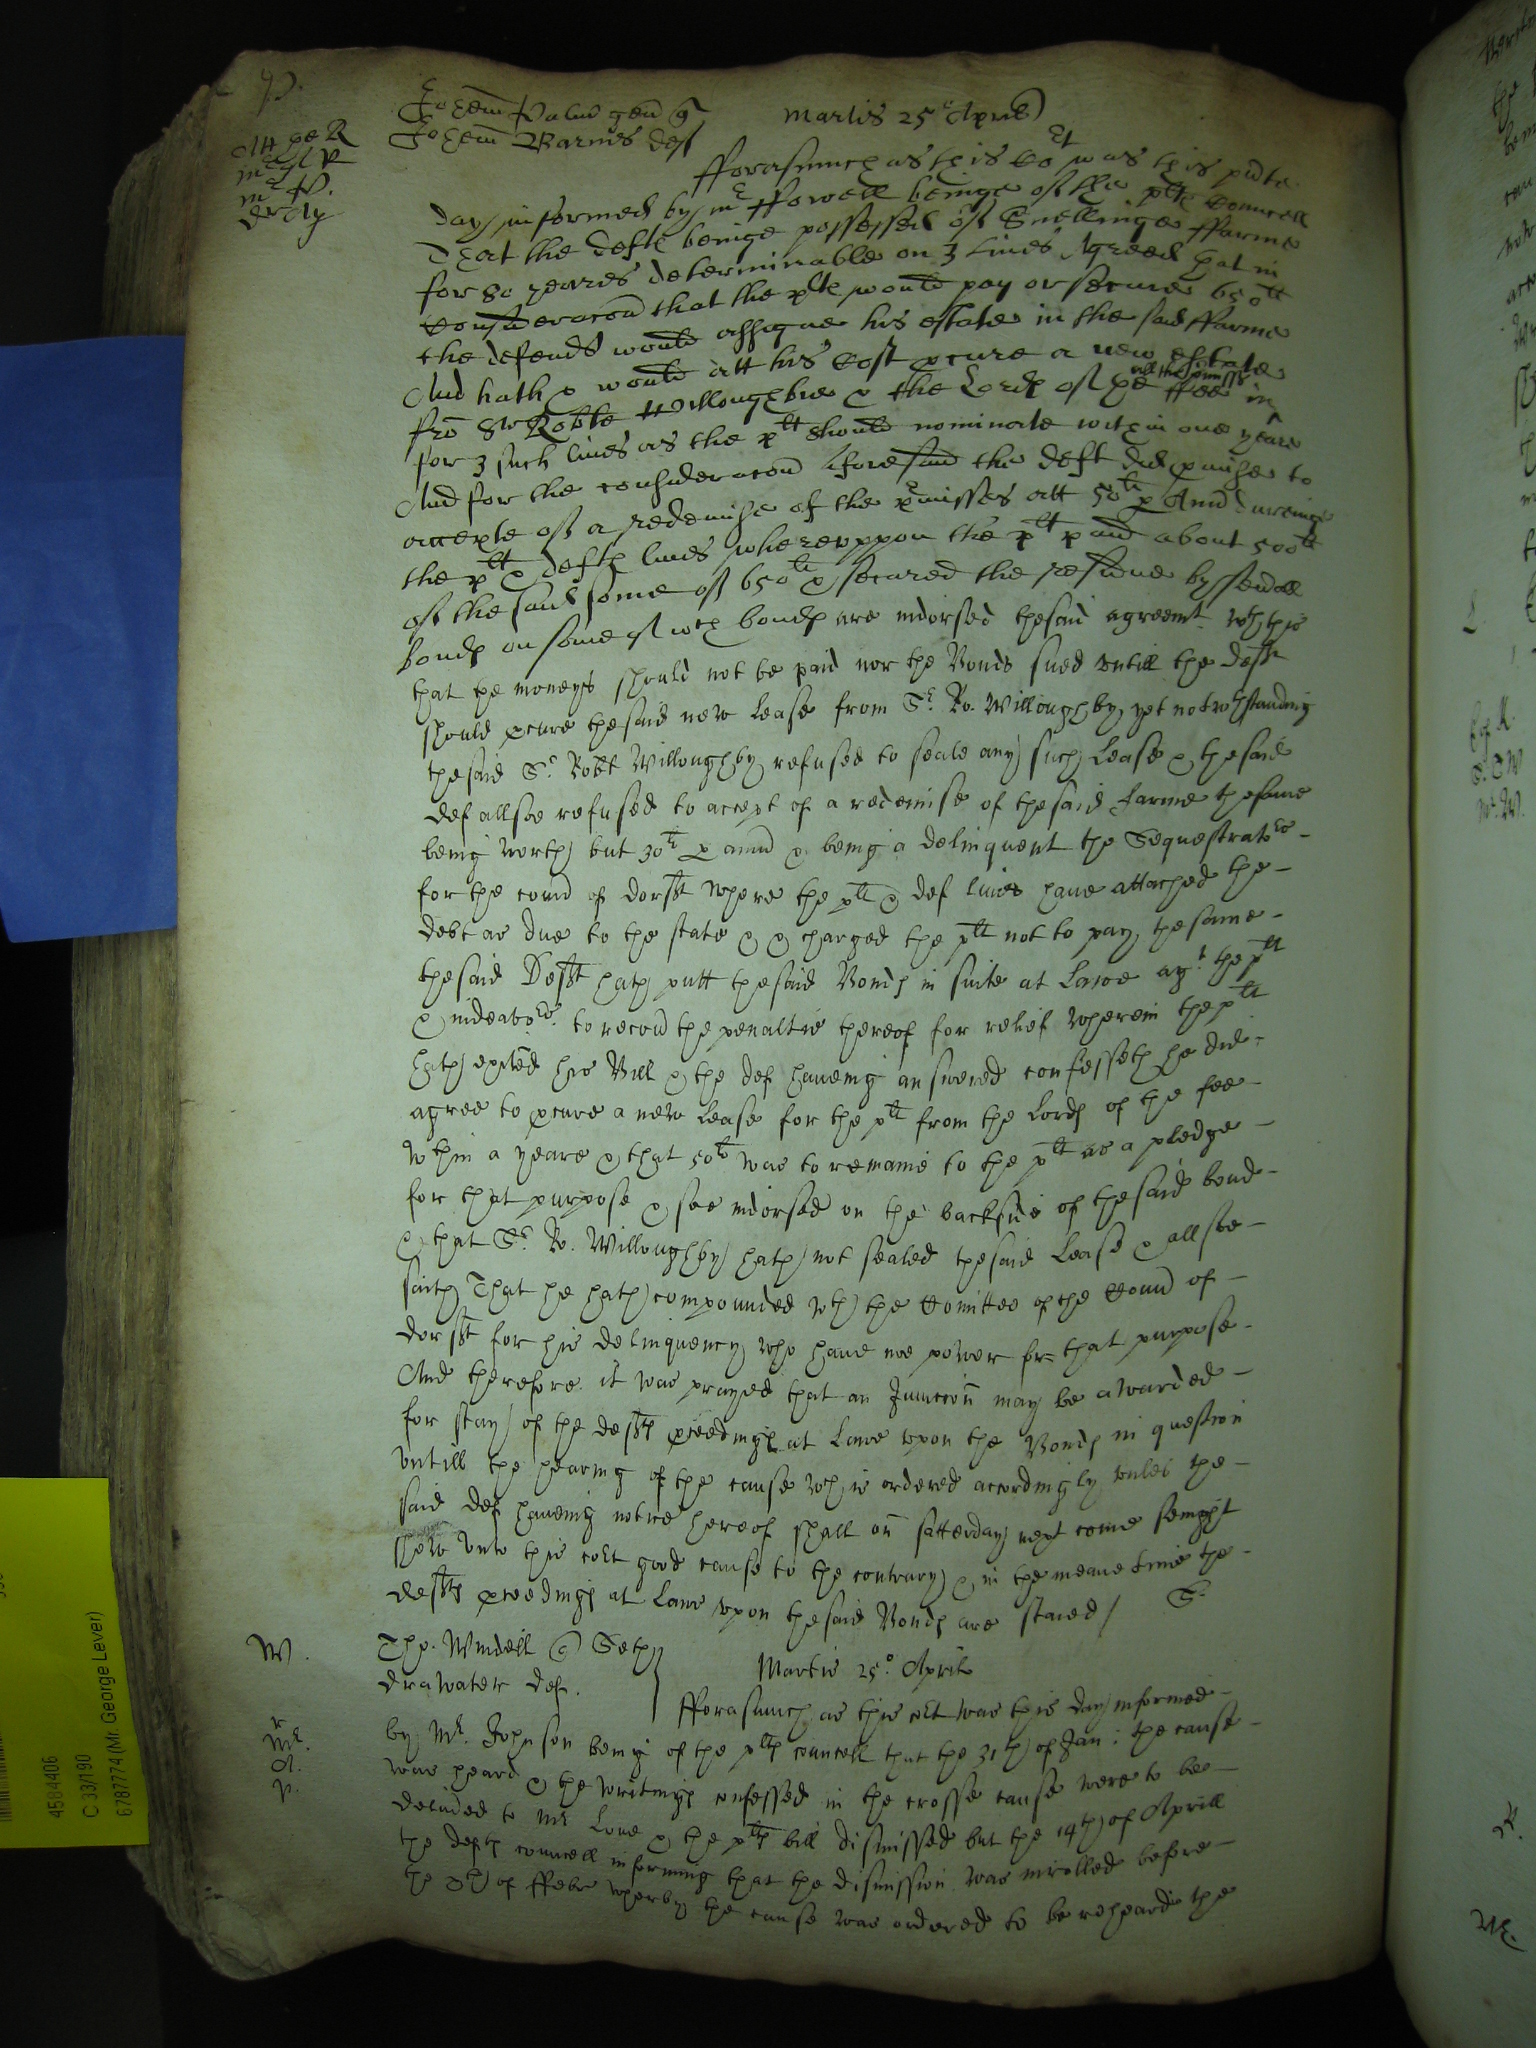 P.
Johem Palmer gen q
Johem Barnes def
Martis 25° Aprilis
Att pe R
mr P.
fforasmuch as this Cort was this pnte
day informed by mr ffowell beinge of the plts Councell
That the defte beinge possessed of Snellinge ffarme
for 80 yeares determinable on 3 lives Agreed that in
Consideracon that the plte would pay or secure 650li
the defendt would assigne his estate in the said ffarme
And hath & would att his Cost pcure a new estate
fro Sr Robte Willoughbie & the Lords of the ffee in
all the pmisses
for 3 such lives as the plt should nominate within one yeare
And for the consideracon aforesaid the deft did pmise to
accepte of a redemise of the pmisses att 50li p Ann dureinge
the plt & defts lives whereuppon the plt paid about 500li
of the said some of 650li & secured the residue by severall
bonds on some of wch bonds are indorsed thesaid agreemt wth this
that the moneys should not be paid nor the Bonds sued untill the deft
should pcure thesaid new Lease from Sr. Ro. Willoughby, yet notwthstanding
thesaid Sr. Robt Willoughby refused to seale any such Lease & thesaid
def allsoe refused to accept of a redemise of thesaid farme thesame
being worth but 30li p annu & being a delinquent the Sequestratrs
for the coun of dorst where the plt & def lives have attached the
debt as due to the state & & charged the plt not to pay thesame
thesaid Deft hath putt thesaid Bonds in suite at Lawe agt the plt
& indeavors to recover the penaltie thereof for releif wherein the plt
hath exhited his Bill & the def haveing answered confesseth he did
agree to pcure a new Lease for the plt from the Lords of the fee
wthin a yeare & that 50li was to remaine to the plt as a pledge
for that purpose & soe indorsed on the backside of thesaid bond
& that Sr. Ro. Willoughby hath not sealed thesaid Lease & allsoe
saith That he hath compounded wth the Comittee of the Coun of
dorst for his delinquency who have noe power for that purpose
And therefore it was prayed that an Juncton may be awarded
for stay of the defts pceedings at Lawe upon the Bonds in question
untill the hearing of the cause wch is ordered accordingly unles the
said def haveing notice hereof shall on satterday next come senight
shew unto this cort good cause to the contrary & in the meane time the
defts pceedings at Lawe upon thesaid Bonds are staied / S.
W.
Tho. Windell q Seth
drawater def.
Martis 25° Aprilis
r
Mr.
A.
P.
fforasmuch as this cort was this day informed
by Mr. Johnson being of the plts councell that the 31th of Jan: the cause
was heard & the writings confessed in the crosse cause were to be
delived to Mr Love & the plts bill dismissed but the 14th of Aprill
the defts councell informing that the dismission was inrolled before
the of ffebr wherby the cause was ordered to be reheard the
4584406
C 33/190
6787774 (Mr. George Lever)